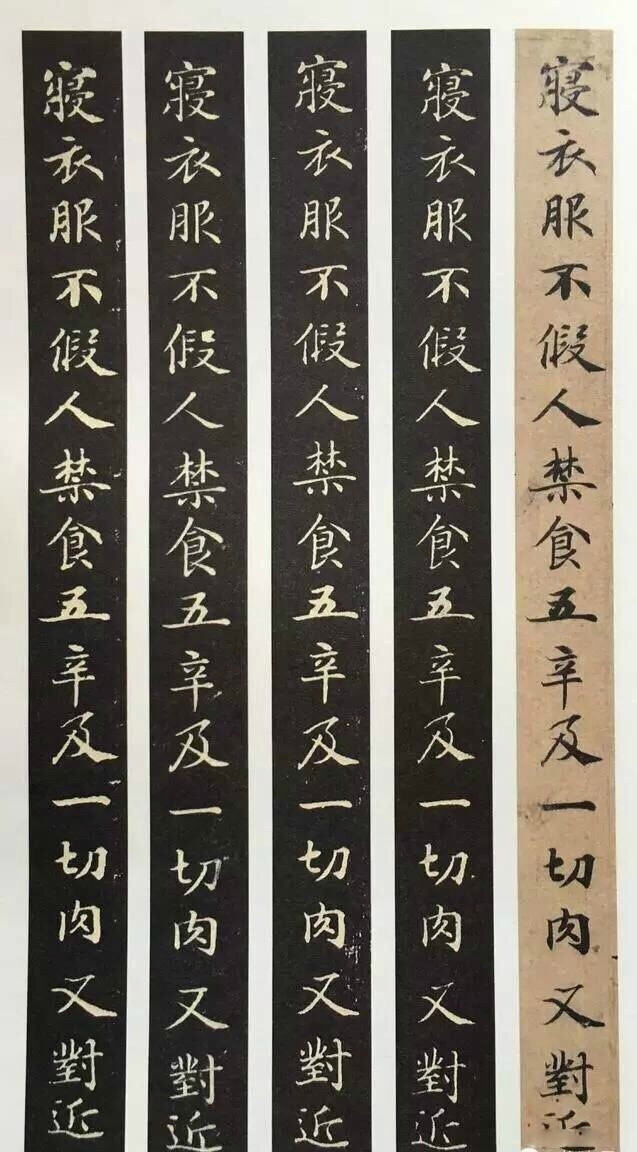 寢衣服不假人禁食五辛及一切肉又對近
寢衣服不假人禁食五辛及一切肉又對近
寢衣服不假人禁食五辛及一切肉又對近
寢衣服不假人禁食五辛及一切肉又對近
寢衣服不假人禁食五辛及一切肉又對近